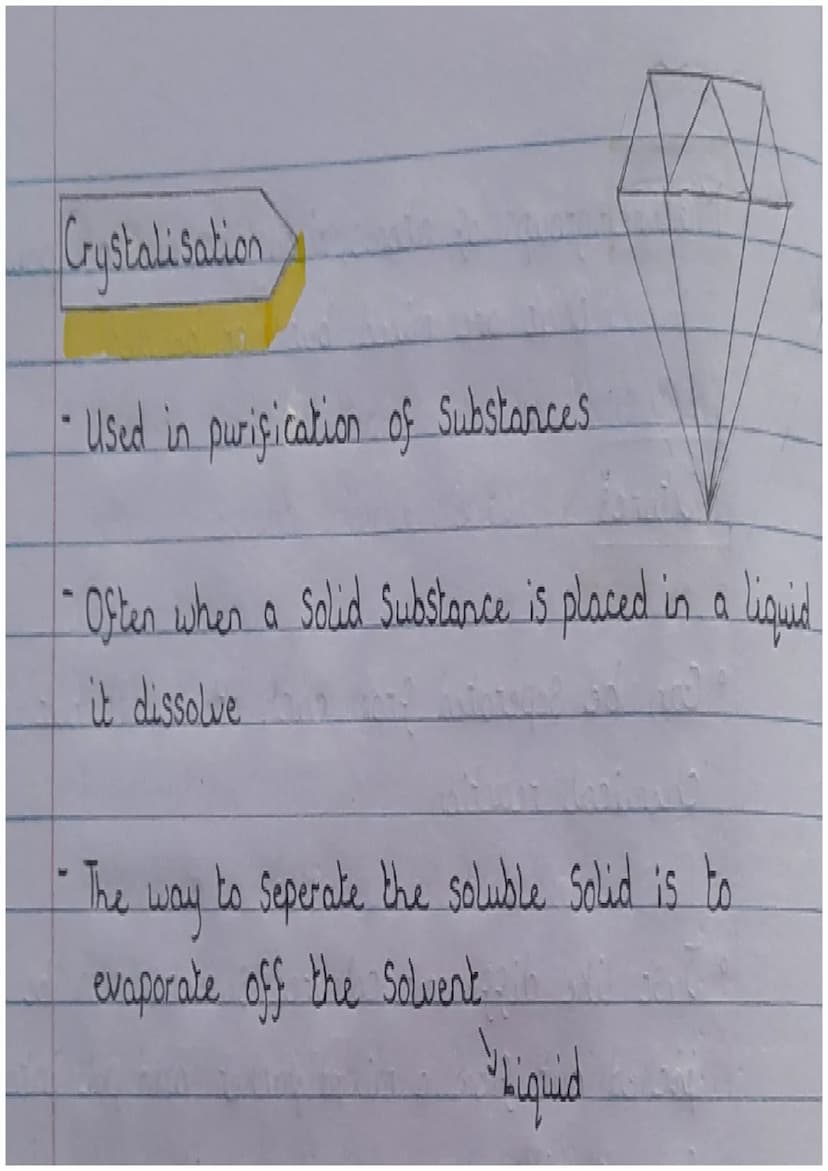 Crystalisation
- Used in purification of Substances
- Often when a Solid Substance is placed in a liquid
it dissolve
- The way to Seperate the soluble Solid is to
evaporate off the Solvent
Liquid